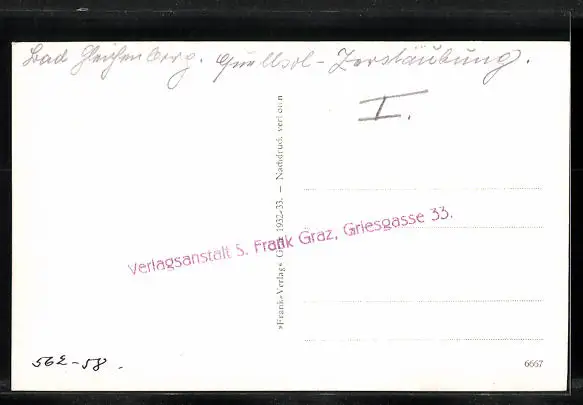 Bad Gleichenberg. Quellsol-Zerstäubung.
I.
»Frank«-Verlag« Graz 1932-33. — Nachdruck verboten
Verlagsanstalt S. Frank Graz, Griesgasse 33.
562-58.
6667